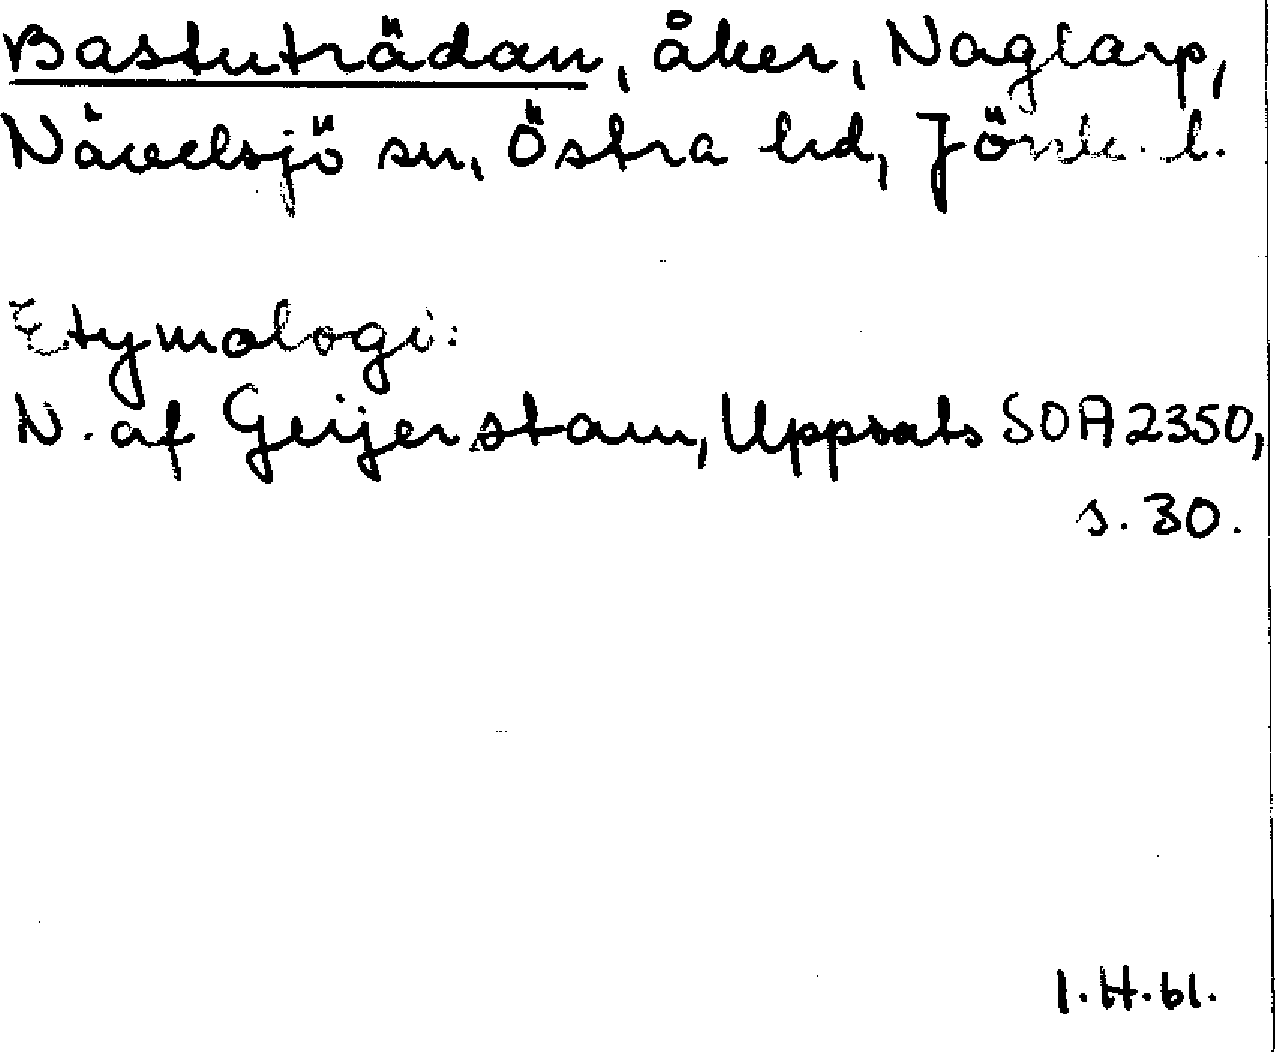 Bastuträdan, åker, Naglarp,
Nävelsjö sn, Östra hd, Jönk. l.
Etymologi:
N. af Geijerstam, Uppsats SOA 2350,
s. 30.
I.H.61.